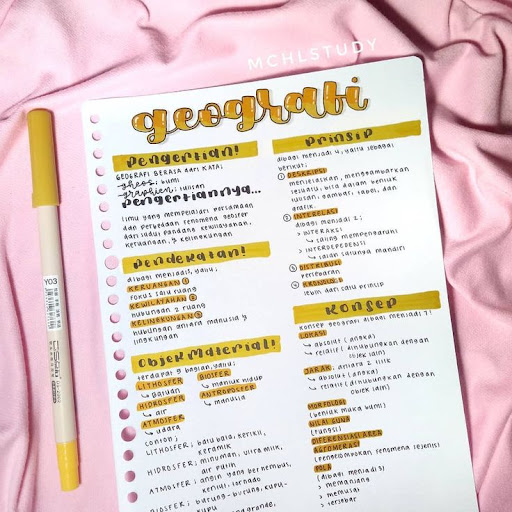 MCHLSTUDY
geografi
Pengertian!
GEOGRAFI BERASA dari KATA;
gheos; bumi
graphien; tulisan
Pengertiannya...
ilmu yang mempelajari persamaan
dan perbedaan fenomena geosfer
dari sudut pandang kewilayahan,
keruangan, & kelingkungan
Pendekatan!
dibagi menjadi, yaitu;
KERUANGAN ①
fokus satu ruang
KEWILAYAHAN ②
hubungan 2 ruang
KELINGKUNGAN ③
hubungan antara manusia &
lingkungan
Objek Material!
terdapat 5 bagian, yaitu;
LITHOSFER
↳ batuan
HIDROSFER
↳ air
ATMOSFER
↳ udara
BIOSFER
↳ makhluk hidup
ANTROPOSFER
↳ manusia
contoh;
LITHOSFER; batu bata, kerikil,
keramik
HIDROSFER; minuman, ultra milk,
air putih
ATMOSFER; angin yang berhembus,
kentut, tornado
burung-burung, kupu-
kupu
Prinsip
dibagi menjadi 4, yaitu sebagai
berikut;
① DESKRIPSI
menjelaskan, menggambarkan
sesuatu, bisa dalam bentuk
tulisan, gambar, tabel, dan
grafik.
② INTERELASI
dibagi menjadi 2;
> INTERAKSI
↳ saling mempengaruhi
> INTERDEPEDENSI
↳ salah satunya mandiri
③ DISTRIBUSI
persebaran
④
lebih dari satu prinsip
Konsep
konsep geografi dibagi menjadi 7!
LOKASI
↳ absolut (angka)
↳ relatif (dihubungkan dengan
objek lain)
JARAK; antara 2 titik
↳ absolut (angka)
↳ relatif (dihubungkan dengan
objek lain)
MORFOLOGI
(bentuk muka bumi)
NILAI GUNA
(fungsi)
DIFERENSIASI AREA
AGLOMERASI
(pengelompokan fenomena sejenis)
POLA
(dibagi menjadi 3)
> memanjang
> memusat
> tersebar
Y03